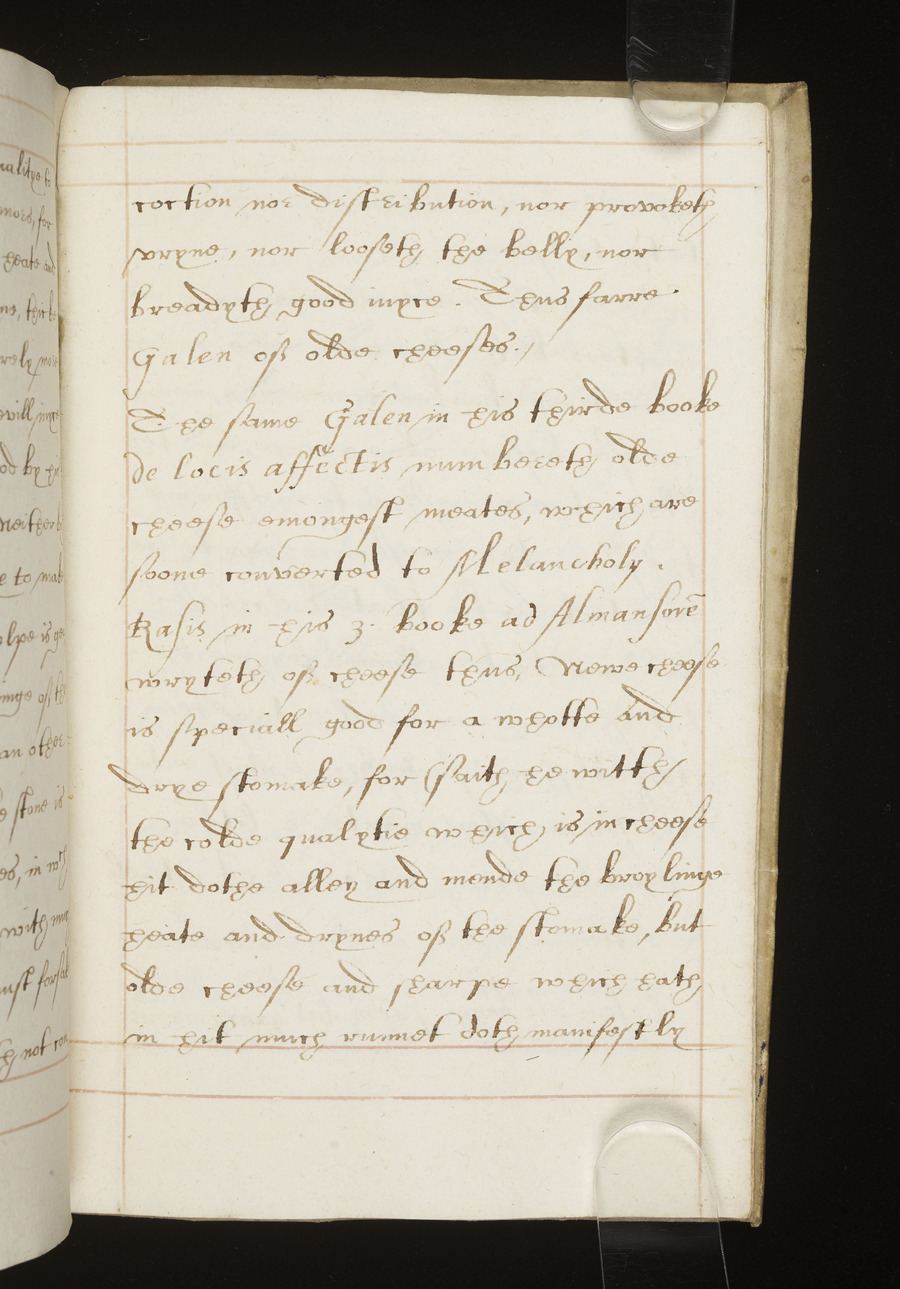 coction nor distribution, nor provoketh
vryne, nor looseth the belly, nor
breadyth good iuyce. Thus farre
Galen of olde cheeses./
The same Galen in his thirde booke
de locis affectis numbereth olde
cheese emongest meates, which are
soone converted to Melancholy.
Rasis in his 3. booke ad Almansorē
wryteth of cheese thus, Newe cheese
is speciall good for a whotte and
drye stomake, for (saith he witth
the colde qualytie which is in cheese
hit dothe alley and mende the broylinge
heate and drynes of the stomake, but
olde cheese and sharpe which hath
in hit much runnet doth manifestly